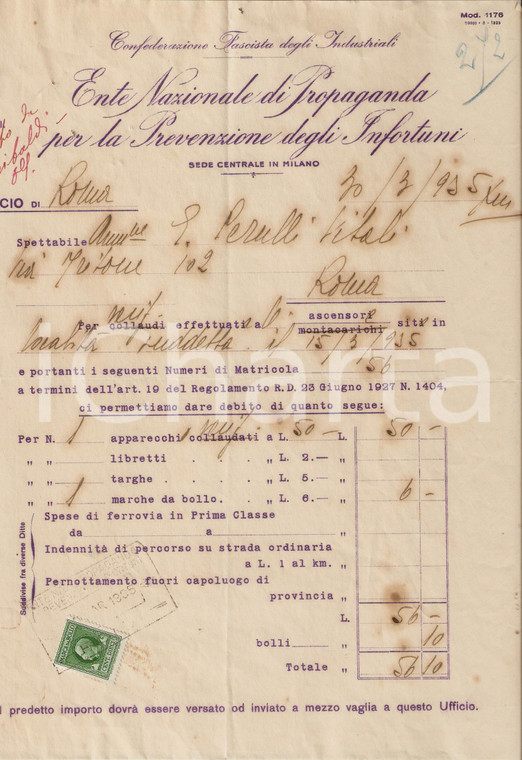 Mod. 1176
Confederazione Fascista degli Industriali
2/2
Ente Nazionale di Propaganda
per la Prevenzione degli Infortuni
SEDE CENTRALE IN MILANO
CIO DI Roma 20/3/935 XIII
Spettabile E. Perulli Vitali
102
Roma
Per collaudi effettuati ascensori montacarichi siti in
località suddetta il 15/3/935
e portanti i seguenti Numeri di Matricola 56
a termini dell'art. 19 del Regolamento R.D. 23 Giugno 1927 N. 1404,
ci permettiamo dare debito di quanto segue:
Per N. 1 apparecchi collaudati a L. 50 — L. 50 —
" " libretti . . . " L. 2.— "
" " targhe . . . . " L. 5.— "
" " 1 marche da bollo. . " L. 6.— " 6 —
Spese di ferrovia in Prima Classe
da a "
Indennità di percorso su strada ordinaria
a L. 1 al km. "
Pernottamento fuori capoluogo di
provincia "
Suddivise fra diverse Ditte
L. 56 —
bolli " 10
Totale " 56 10
l predetto importo dovrà essere versato od inviato a mezzo vaglia a questo Ufficio.